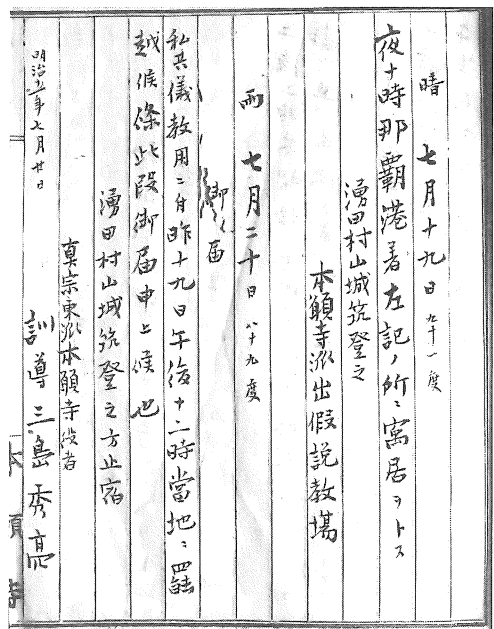 晴 七月十九日 九十一度
夜十時那覇港着左記ノ所ニ寓居ヲトス
湧田村山城筑登之
本願寺派出假説教場
雨 七月二十日 八十九度
御届
私共儀教用ニ付昨十九日午後十二時當地ニ罷
越候條此段御届申上候也
湧田村山城筑登之方止宿
真宗東派本願寺役者
訓導 三島秀亮
明治九年七月廿日
本願寺